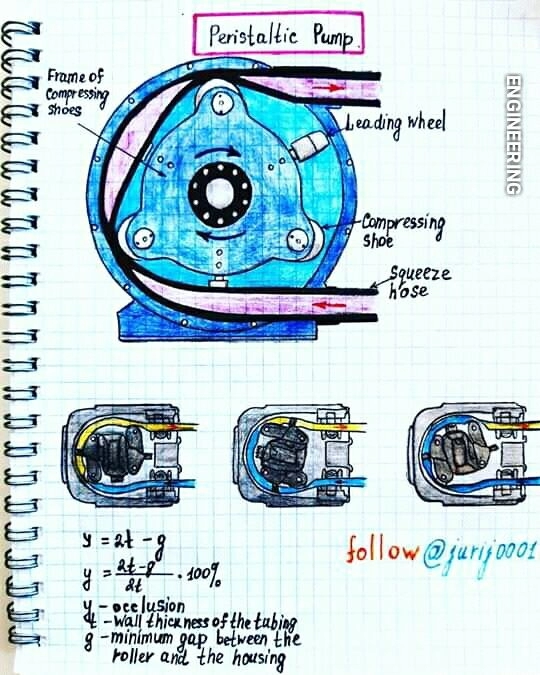 Peristaltic Pump
ENGINEERING
Frame of
Compressing
shoes
Leading wheel
Compressing
shoe
Squeeze
hose
y = 2t - g
y = 2t-g/2t · 100%
y - occlusion
t - wall thickness of the tubing
g - minimum gap between the
roller and the housing
follow @jurij0001